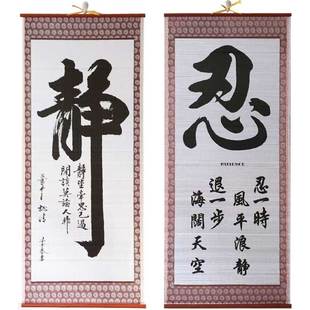 靜
靜坐常思己過
閒談莫論人非
忍
PATIENCE
忍一時
風平浪靜
退一步
海闊天空